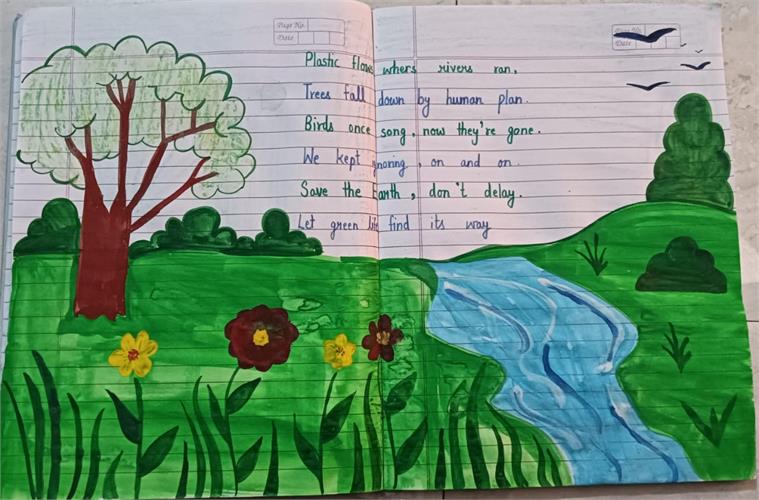 Page No.
Date
Page No.
Date
Plastic flows whers rivers ran.
Trees fall down by human plan.
Birds once song, now they're gone.
We kept ignoring, on and on.
Save the Earth, don't delay.
Let green life find its way